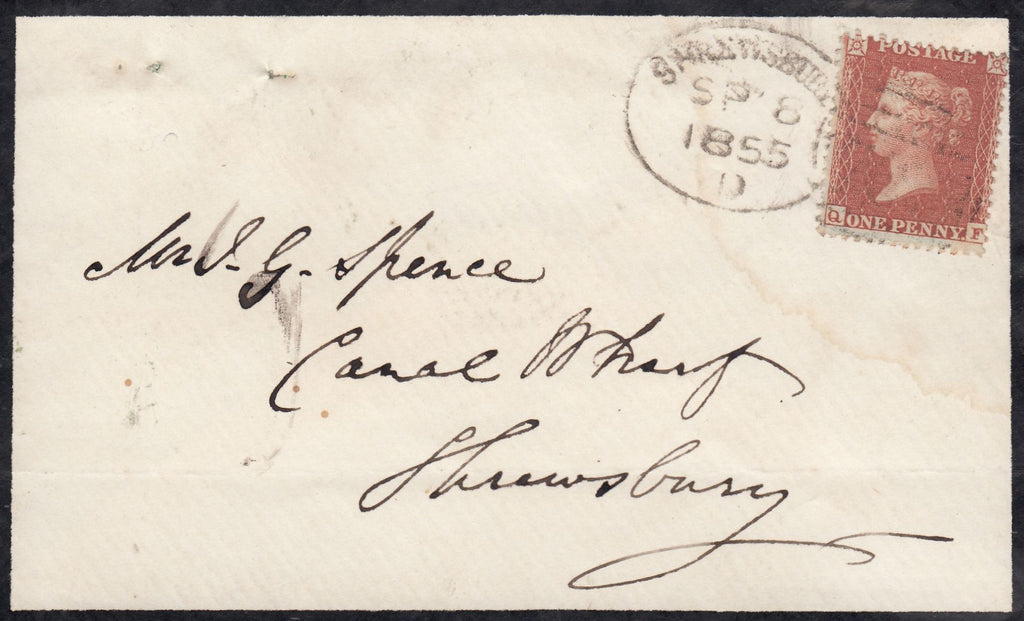 SHREWSBURY
SP 8
1855
D
POSTAGE
Q ONE PENNY F
Mr J. G. Spence
Canal Wharf
Shrewsbury